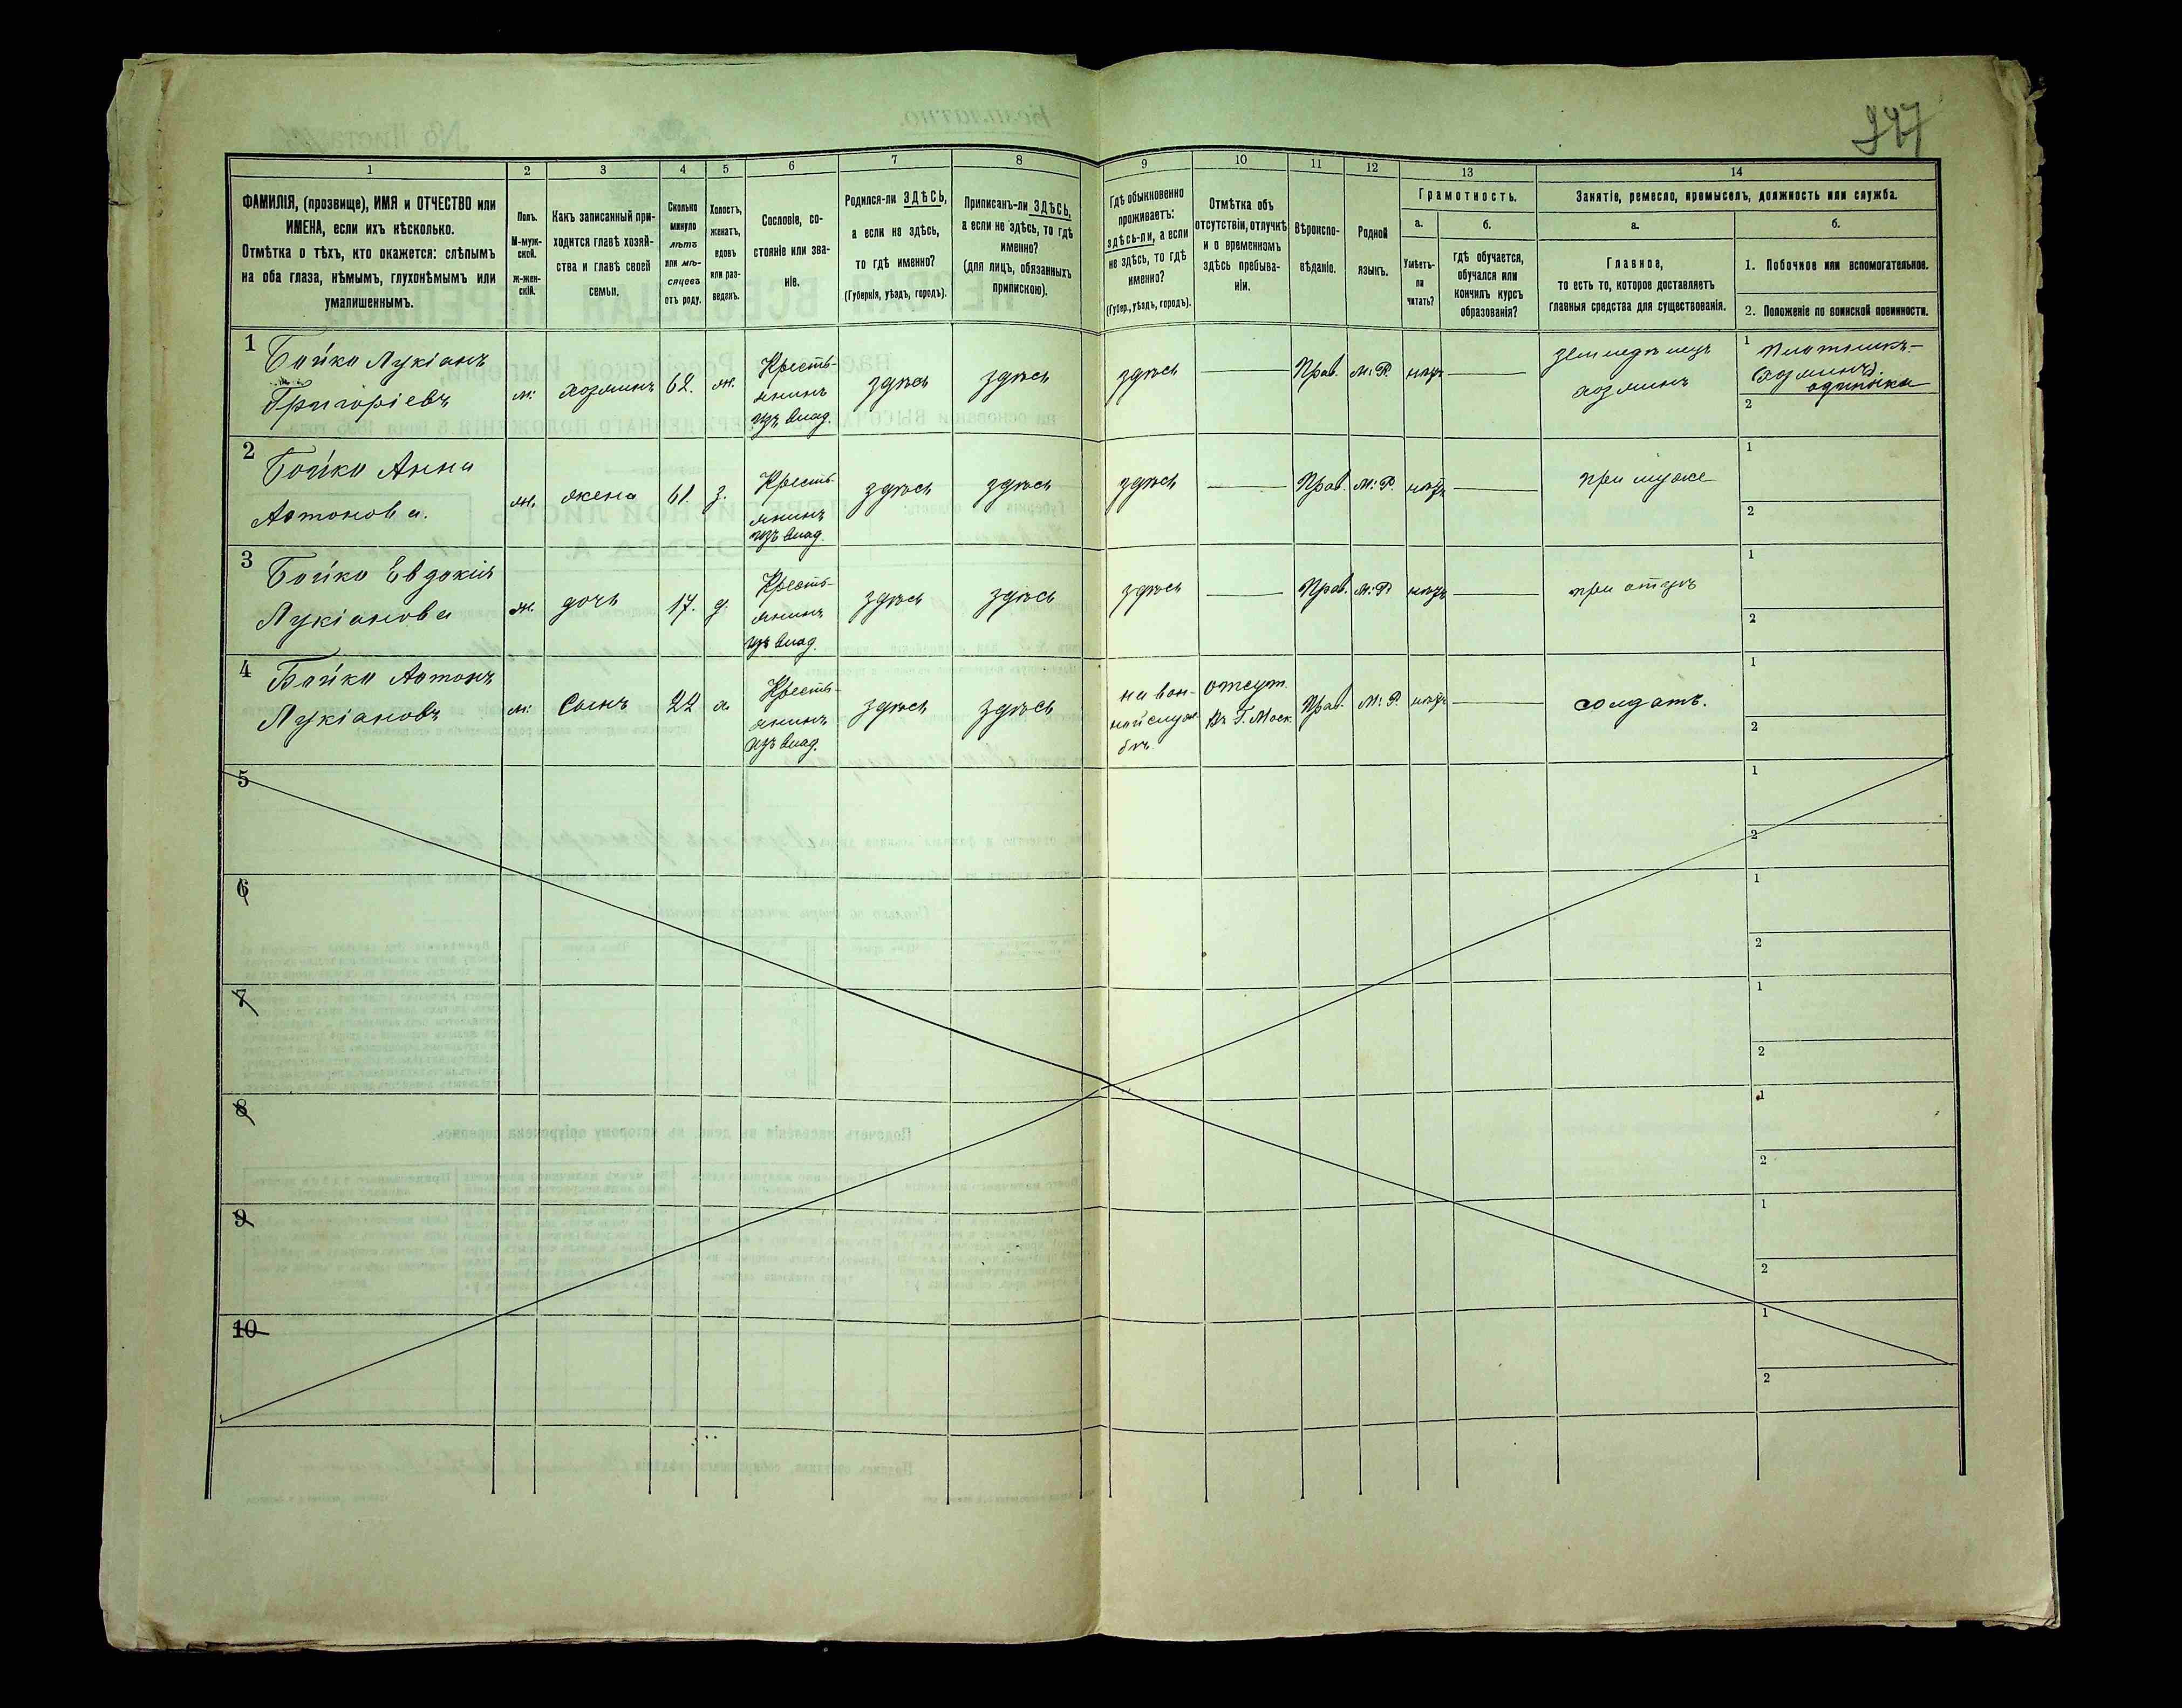 247
1 2 3 4 5 6 7 8 9 10 11 12 13 14
ФАМИЛІЯ, (прозвище), ИМЯ и ОТЧЕСТВО или
ИМЕНА, если ихъ нѣсколько.
Отмѣтка о тѣхъ, кто окажется: слѣпымъ
на оба глаза, нѣмымъ, глухонѣмымъ или
умалишеннымъ.
Полъ.
М-муж-
ской.
ж-жен-
скій.
Какъ записанный при-
ходится главѣ хозяй-
ства и главѣ своей
семьи.
Сколько
минуло
лѣтъ
или мѣ-
сяцевъ
отъ роду.
Холостъ,
женатъ,
вдовъ
или раз-
веденъ.
Сословіе, со-
стояніе или зва-
ніе.
Родился-ли ЗДѢСЬ,
а если не здѣсь,
то гдѣ именно?
(Губернія, уѣздъ, городъ).
Приписанъ-ли ЗДѢСЬ,
а если не здѣсь, то гдѣ
именно?
(для лицъ, обязанныхъ
припискою).
Гдѣ обыкновенно
проживаетъ:
здѣсь-ли, а если
не здѣсь, то гдѣ
именно?
(Губер., уѣздъ, городъ).
Отмѣтка объ
отсутствіи, отлучкѣ
и о временномъ
здѣсь пребыва-
ніи.
Вѣроиспо-
вѣданіе.
Родной
языкъ.
Грамотность.
а.
Умѣетъ-
ли
читать?
б.
гдѣ обучается,
обучался или
кончилъ курсъ
образованія?
Занятіе, ремесло, промыселъ, должность или служба.
а.
Главное,
то есть то, которое доставляетъ
главныя средства для существованія.
б.
1. Побочное или вспомогательное.
2. Положеніе по воинской повинности.
1
Бойко Лукіанъ
Григоріевъ
м:
хозяинъ
62.
ж.
Кресть-
янинъ
изъ влад.
здѣсь
здѣсь
здѣсь
Прав.
М: Р.
нѣтъ
земледѣлецъ
хозяинъ
1
Плотникъ-
(хозяинъ).
одиночка
2
2
Бойко Анна
Антонова.
ж.
жена
61.
з.
Кресть-
янинъ
изъ влад.
здѣсь
здѣсь
здѣсь
Прав.
М: Р.
нѣтъ
при мужѣ
1
2
3
Бойко Евдокія
Лукіанова
ж.
дочь
17.
д.
Кресть-
янинъ
изъ влад.
здѣсь
здѣсь
здѣсь
Прав.
М: Р.
нѣтъ
при отцѣ
1
2
4
Бойко Антонъ
Лукіановъ
м:
Сынъ
22
х.
Кресть-
янинъ
изъ влад.
здѣсь
здѣсь
на воен-
ной служ-
бѣ.
отсут.
въ Г. Моск.
Прав.
М: Р.
нѣтъ
солдатъ.
1
2
5
1
2
6
1
2
7
1
2
8
1
2
9
1
2
10
1
2